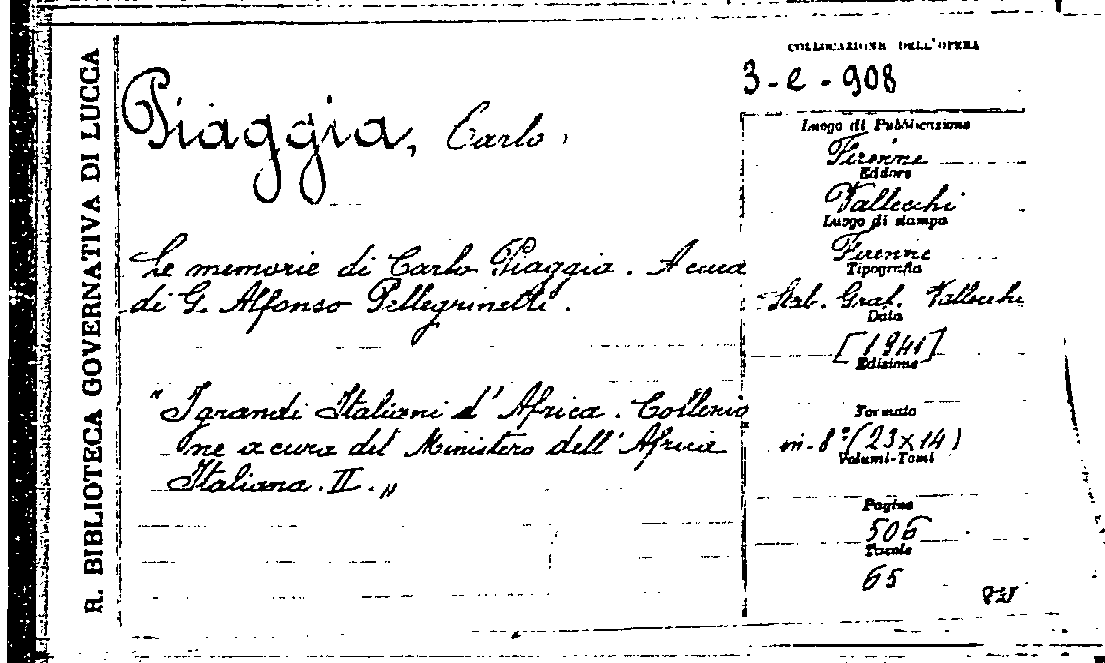 R. BIBLIOTECA GOVERNATIVA DI LUCCA
COLLOCAZIONE DELL'OPERA
3-e-908
Piaggia, Carlo.
Le memorie di Carlo Piaggia. A cura
di G. Alfonso Pellegrinetti.
"I grandi Italiani d'Africa. Collezio
ne a cura del Ministero dell'Africa
Italiana. II."
Luogo di Pubblicazione
Firenze
Editore
Vallecchi
Luogo di stampa
Firenze
Tipografia
Stab. Graf. Vallecchi
Data
[1941]
Edizione
Formato
in-8°(23x14)
Volumi-Tomi
Pagine
506
Tavole
65